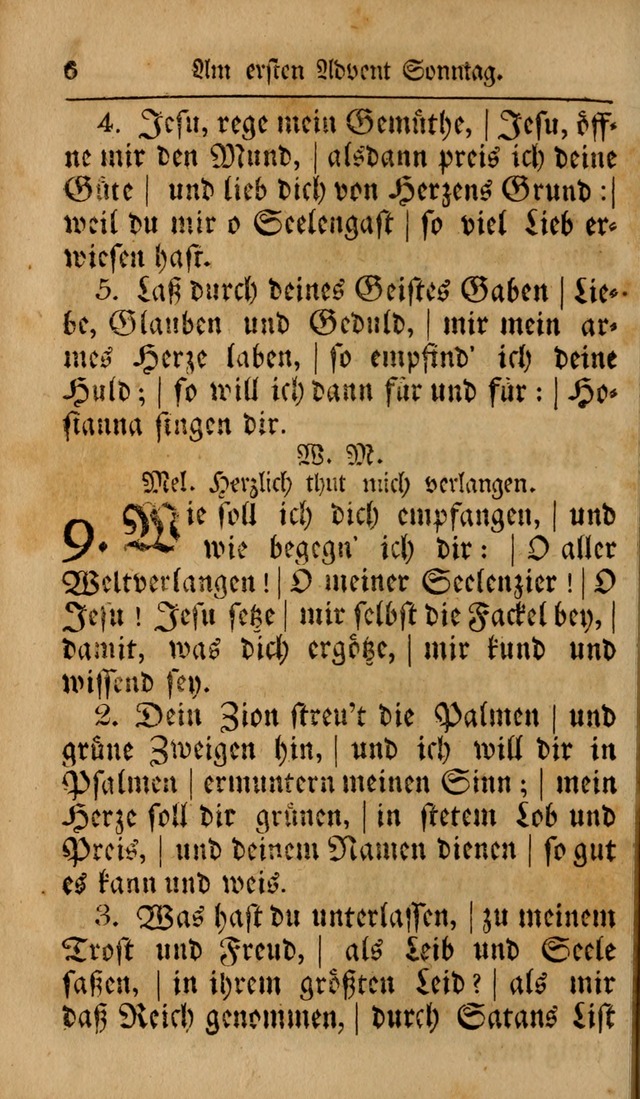 6 Am ersten Advent Sonntag.
4. Jesu, rege mein Gemüthe, | Jesu, öff-
ne mir den Mund, | alsdann preis ich deine
Güte | und lieb dich von Herzens Grund :|
weil du mir o Seelengast | so viel Lieb er-
wiesen hast.
5. Laß durch deines Geistes Gaben | Lie-
be, Glauben und Geduld, | mir mein ar-
mes Herze laben, | so empfind' ich deine
Huld; | so will ich dann für und für : | Ho-
sianna singen dir.
W. M.
Mel. Herzlich thut mich verlangen.
9. Wie soll ich dich empfangen, | und
wie begegn' ich dir : | O aller
Weltverlangen ! | O meiner Seelenzier ! | O
Jesu ! Jesu setze | mir selbst die Fackel bey, |
damit, was dich ergötze, | mir kund und
wissend sey.
2. Dein Zion streu't die Palmen | und
grüne Zweigen hin, | und ich will dir in
Psalmen | ermuntern meinen Sinn ; | mein
Herze soll dir grünen, | in stetem Lob und
Preis, | und deinem Namen dienen | so gut
es kann und weis.
3. Was hast du unterlassen, | zu meinem
Trost und Freud, | als Leib und Seele
saßen, | in ihrem größten Leid? | als mir
daß Reich genommen, | durch Satans List